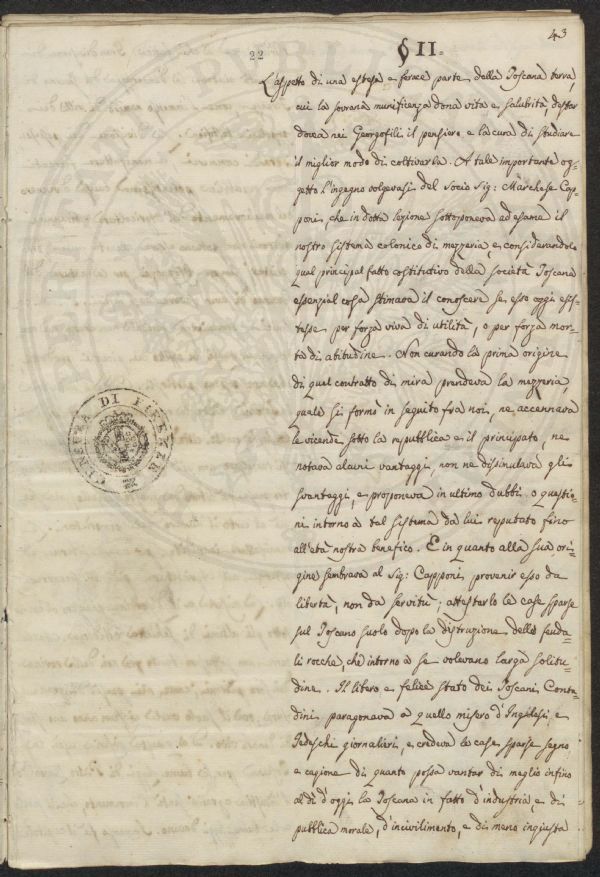 43
22
§ II.
L'aspetto di una estesa e ferace parte della Toscana terra,
cui la sovrana munificenza dona vita e salubrità, destar
dovea nei Georgofili il pensiero e la cura di studiare
il miglior modo di coltivarla. A tale importante og=
getto l'ingegno volgevasi del Socio Sig: Marchese Cap=
poni, che in dotta lezione sottoponeva ad esame il
nostro sistema colonico di mezzeria e considerandolo
qual principal fatto costitutivo della società Toscana
essenzial cosa stimava il conoscere se esso oggi esis=
tesse per forza viva di utilità, o per forza mor=
ta di abitudine. Non curando la prima origine
di quel contratto di mira prendeva la mezzeria,
quale si formò in seguito fra noi, ne accennava
le vicende sotto la repubblica e il principato, ne
notava alcuni vantaggi, non ne dissimulava gli
svantaggi, e proponeva in ultimo dubbi o questio=
ni intorno a tal sistema da lui reputato fino
all'età nostra benefico. E in quanto alla sua ori=
gine sembrava al Sig: Capponi, provenir esso da
libertà, non da servitù; attestarlo le case sparse
sul Toscano suolo dopo la distruzione delle feuda=
li rocche, che intorno a se volevano larga solitu=
dine. Il libero e felice stato dei Toscani Conta=
dini paragonava a quello misero d'Inglesi, e
Tedeschi giornalieri, e credeva le case sparse segno
e cagione di quanto possa vantar di meglio infino
al dì d'oggi la Toscana in fatto d'industria, e di
pubblica morale, d'incivilimento, e di meno ingiusta
DI FIRENZE